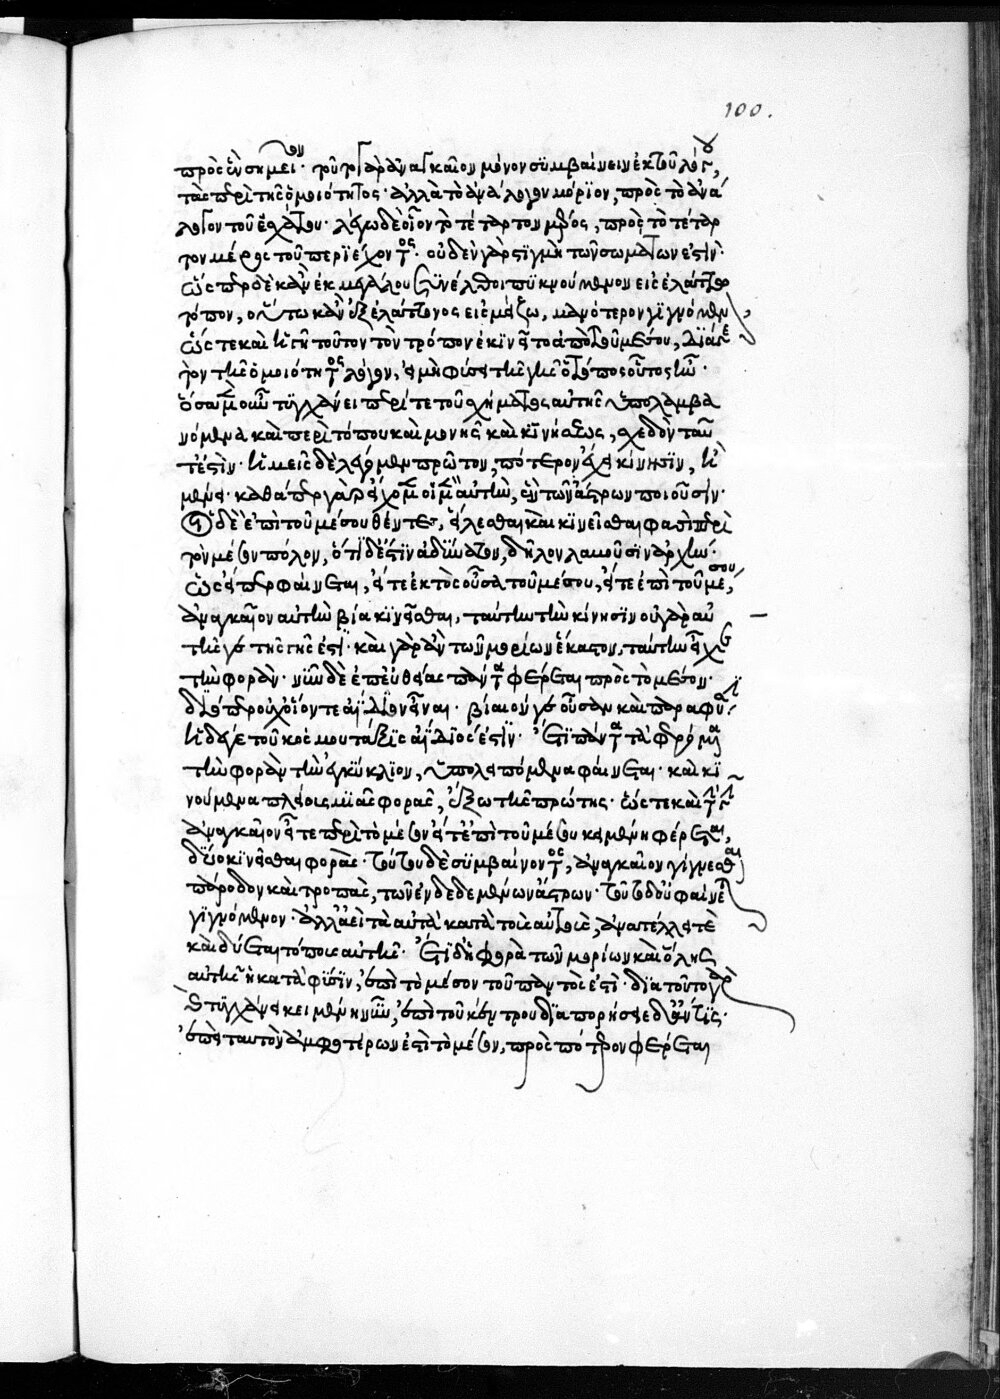 πρὸς ἓν σημεῖον· τοῦτο γὰρ ἀναγκαῖον μόνον συμβαίνειν ἐκ τοῦ λόγου,
τὰς περὶ τῆς ὁμοιότητος· ἀλλὰ τὸ ἀνάλογον μόριον, πρὸς τὸ ἀνά
λογον τοῦ ἐσχάτου· λέγω δὲ οἷον τὸ τέταρτον μέρος, πρὸς τὸ τέταρ
τον μέρος τοῦ περιέχοντος· οὐδὲν γὰρ στιγμὴ τῶν σωμάτων ἐστίν·
ὥσπερ δὲ κἂν ἐκ μεγάλου συνέλθοι πυκνούμενον εἰς ἐλάττω
τόπον, οὕτω κἂν ἐξ ἐλάττονος εἰς μείζω, μανότερον γιγνόμενον
ὥστε καὶ ἡ γῆ τοῦτον τὸν τρόπον ἐκινεῖτο ἀπὸ τοῦ μέσου, διά γε
τὸν τῆς ὁμοιότητος λόγον, εἰ μὴ φύσει τῆς γῆς ὁ τόπος οὗτος ἦν·
ὅσα μὲν οὖν τυγχάνει περί τε τοῦ σχήματος αὐτῆς ὑπολαμβα
νόμενα καὶ περὶ τόπου καὶ μονῆς καὶ κινήσεως, σχεδὸν ταῦ
τ' ἐστίν· ἡμεῖς δὲ λέγομεν πρῶτον, πότερον ἔχει κίνησιν, ἢ
μένει· καθάπερ γὰρ εἴπομεν οἱ μὲν αὐτὴν, ἓν τῶν ἄστρων ποιοῦσιν·
οἱ δὲ ἐπὶ τοῦ μέσου θέντες, εἵλεσθαι καὶ κινεῖσθαι φασὶ περὶ
τὸν μέσον πόλον, ὅτι δ' ἐστὶν ἀδύνατον, δῆλον λαβοῦσιν ἀρχὴν·
ὡς εἴπερ φαίνεται, εἴτε ἐκτὸς οὖσα τοῦ μέσου, εἴτε ἐπὶ τοῦ μέσου,
ἀναγκαῖον αὐτὴν βία κινεῖσθαι, ταύτην τὴν κίνησιν οὐ γὰρ αὐ
τῆς γε τῆς γῆς ἐστί· καὶ γὰρ ἂν τῶν μορίων ἕκαστον, ταύτην εἶχε
τὴν φοράν· νῦν δὲ ἐπ' εὐθείας πάντα φέρεται πρὸς τὸ μέσον·
διόπερ οὐχ οἷόν τε ἀΐδιον εἶναι· βίαιον γε οὖσαν καὶ παρὰ φύσιν·
ἡ δέ γε τοῦ κόσμου τάξις ἀΐδιός ἐστίν· Ἔτι πάντα τὰ φερόμενα
τὴν φορὰν τὴν ἐγκύκλιον, ὑπολειπόμενα φαίνεται· καὶ κι
νούμενα πλείους μιᾶς φορᾶς, ἔξω τῆς πρώτης· ὥστε καὶ τὴν γῆν
ἀναγκαῖον εἴτε περὶ τὸ μέσον εἴτ' ἐπὶ τοῦ μέσου κειμένη φέρεται,
δύο κινεῖσθαι φοράς· τούτου δὲ συμβαίνοντος, ἀναγκαῖον γίγνεσθαι
πάροδον καὶ τροπὰς, τῶν ἐνδεδεμένων ἄστρων· τοῦτο δ' οὐ φαίνεται
γιγνόμενον· ἀλλ' ἀεὶ τὰ αὐτὰ κατὰ τοὺς αὐτοὺς, ἀνατέλλει τὲ
καὶ δύεται τόπους αὐτῆς· Ἔτι δ' ἡ φορὰ τῶν μορίων καὶ ὅλης
αὐτῆς ἡ κατὰ φύσιν, ἐπὶ τὸ μέσον τοῦ παντός ἐστι· διὰ τοῦτο γὰρ
καὶ τυγχάνει κειμένη νῦν, ἐπὶ τοῦ κέντρου διαπορήσειε δ' ἄν τις·
ἐπεὶ ταυτὸν ἀμφοτέρων ἐστὶ τὸ μέσον, πρὸς πότερον φέρεται